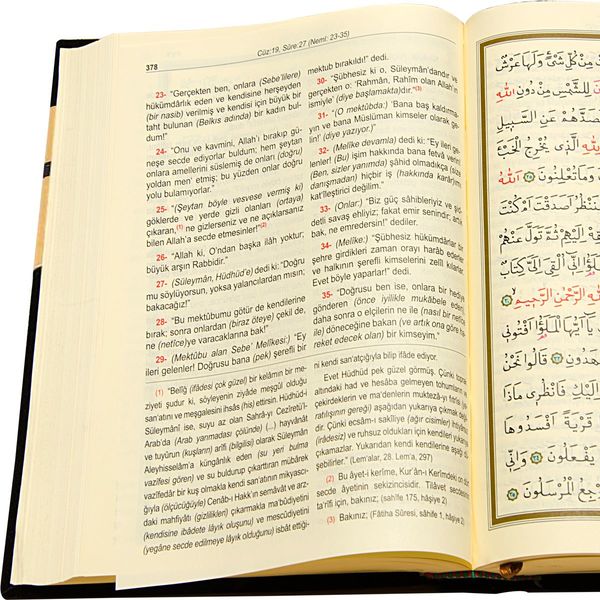 Cüz:19, Sûre:27 (Neml: 23-35)
378
23- “Gerçekten ben, onlara (Sebe’lilere)
hükümdârlık eden ve kendisine herşeyden
(bir nasib) verilmiş ve kendisi için büyük bir
taht bulunan (Belkıs adında) bir kadın bul-
dum!”
24- “Onu ve kavmini, Allah’ı bırakıp gü-
neşe secde ediyorlar buldum; hem şeytan
onlara amellerini süslemiş de onları (doğru)
yoldan men‘ etmiş; bu yüzden onlar doğru
yolu bulamıyorlar.”
25- “(Şeytan böyle vesvese vermiş ki)
göklerde ve yerde gizli olanları (ortaya)
çıkaran,(1) ne gizlerseniz ve ne açıklarsanız
bilen Allah’a secde etmesinler!”(2)
26- “Allah ki, O’ndan başka ilâh yoktur;
büyük arşın Rabbidir.”
27- (Süleymân, Hüdhüd’e) dedi ki: “Doğru
mu söylüyorsun, yoksa yalancılardan mısın;
bakacağız!”
28- “Bu mektûbumu götür de kendilerine
bırak; sonra onlardan (biraz öteye) çekil de,
ne (netîce)ye varacaklarına bak!”
29- (Mektûbu alan Sebe’ Melîkesi:) “Ey
ileri gelenler! Doğrusu bana (pek) şerefli bir
mektub bırakıldı!” dedi.
30- “Şübhesiz ki o, Süleymân’dandır ve
gerçekten o: ‘Rahmân, Rahîm olan Allah’ın
ismiyle’ (diye başlamakta)dır.”(3)
31- “(O mektûbda:) ‘Bana baş kaldırma-
yın ve bana Müslüman kimseler olarak ge-
lin!’ (diye yazıyor.)”
32- (Melîke devamla) dedi ki: “Ey ileri ge-
lenler! (Bu) işim hakkında bana fetvâ verin!
(Ben, sizler yanımda) şâhid olmadıkça (size
danışmadan) hiçbir iş (hakkında karâr)ımı
kat‘îleştirici değilim.”
33- (Onlar:) “Biz güç sâhibleriyiz ve şid-
detli savaş ehliyiz; fakat emir senindir; artık
bak, ne emredersin!” dediler.
34- (Melîke:) “Şübhesiz hükümdârlar bir
şehre girdikleri zaman orayı harâb ederler
ve halkının şerefli kimselerini zelîl kılarlar.
Evet böyle yaparlar!” dedi.
35- “Doğrusu ben ise, onlara bir hediye
gönderen (önce iyilikle mukābele eden),
daha sonra o elçilerin ne ile (nasıl bir netîce
ile) döneceğine bakan (ve artık ona göre ha-
reket edecek olan) bir kimseyim.”
(1) “Belîğ (ifâdesi çok güzel) bir kelâmın bir me-
ziyeti şudur ki, söyleyenin ziyâde meşgūl olduğu
san‘atını ve meşgalesini ihsâs (his) ettirsin. Hüdhüd-i
Süleymânî ise, suyu az olan Sahrâ-yı Cezîretü’l-
Arab’da (Arab yarımadası çölünde) (...) hayvanât
ve tuyûrun (kuşların) arîfi (bilgisi) olarak Süleymân
Aleyhisselâm’a künğânlık eden (su yeri bulma
vazîfesi gören) ve su buldurup çıkarttıran mübârek
vazîfedâr bir kuş olmakla kendi san‘atının mikyasçı-
ığıyla (ölçücüğüyle) Cenâb-ı Hakk’ın semâvât ve arz-
daki mahfiyâtı (gizlilikleri) çıkarmakla ma‘bûdiyetini
(kendisine ibâdete lâyık oluşunu) ve mescûdiyetini
(yegâne secde edilmeye lâyık olduğunu) isbât ettiği-
ni kendi san‘atçığıyla bilip ifâde ediyor.
Evet Hüdhüd pek güzel görmüş. Çünki toprak
altındaki had ve hesâba gelmeyen tohumların ve
çekirdeklerin ve ma‘denlerin muktezâ-yı fıtrîsi (ya-
ratılışının gereği) aşağıdan yukarıya çıkmak değil-
dir. Çünki ecsâm-ı sakīliye (ağır cisimler) ihtiyârsız
(irâdesiz) ve ruhsuz oldukları için kendileri yukarıya
çıkamazlar. Yukarıdan kendi kendilerine aşağı dü-
şebilirler.” (Lem‘alar, 28. Lem‘a, 297)
(2) Bu âyet-i kerîme, Kur’ân-ı Kerîm’deki on dört
secde âyetinin sekizincisidir. Tilâvet secdesinin
ta‘rîfi için, bakınız; (sahîfe 175, hâşiye 2)
(3) Bakınız; (Fâtiha Sûresi, sahîfe 1, hâşiye 2)
مِنْ كُلِّ شَيْءٍ وَلَهَا عَرْشٌ
لِلشَّمْسِ مِنْ دُونِ اللّٰهِ
فَصَدَّهُمْ عَنِ السَّبِيلِ
الَّذِي يُخْرِجُ الْخَبْءَ
وَمَا تُعْلِنُونَ ﴿٢٥﴾ اَللّٰهُ
سَنَنْظُرُ اَصَدَقْتَ اَمْ كُنْتَ
فَاَلْقِهْ اِلَيْهِمْ ثُمَّ تَوَلَّ عَنْهُمْ
اِنِّي اُلْقِيَ اِلَيَّ كِتَابٌ
اللّٰهِ الرَّحْمٰنِ الرَّحِيمِ
يَا اَيُّهَا الْمَلَؤُا اَفْتُونِي
قَالُوا نَحْنُ
اِلَيْكِ فَانْظُرِي مَاذَا
قَرْيَةً اَفْسَدُوهَا
يَفْعَلُونَ ﴿٣٤﴾ وَاِنِّي
يَرْجِعُ الْمُرْسَلُونَ